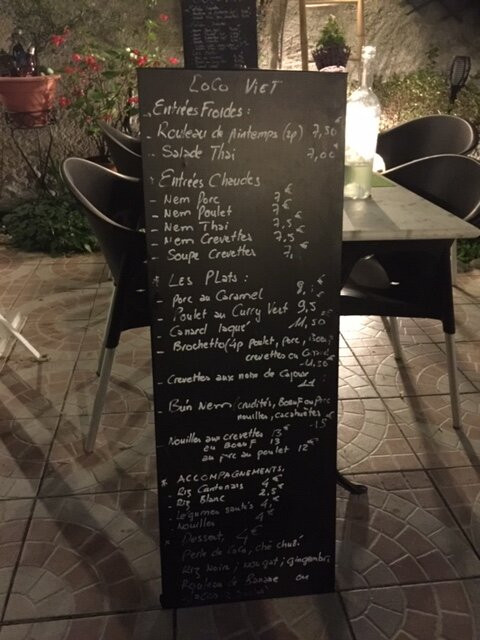 LOCO VIET
Entrées Froides :
- Rouleau de Printemps (2p) 7,50€
- Salade Thai 7,00€
Entrées Chaudes
- Nem Porc 7€
- Nem Poulet 7€
- Nem Thai 7,5€
- Nem Crevettes 7,5€
- Soupe Crevettes 7,€
* Les Plats :
- Porc au Caramel
- Poulet au Curry Vert 9,5
- Canard laqué 11,50
- Brochette (4p poulet, porc,
crevettes ou
- Crevettes aux noix de Cajou
- Bun Nem (crudités, Boeuf ou Porc
nouilles, cacahuètes
Nouilles aux crevettes 13€
ou Boeuf 13
au porc ou poulet 12€
* ACCOMPAGNEMENTS.
- Riz Cantonais 4€
- Riz Blanc 2,5€
- Légumes sautés 4,€
- Nouilles 4€
* Dessert, 4€
Perle de Coco,
Riz Noir, nougat, gingembre,
de Banane ou